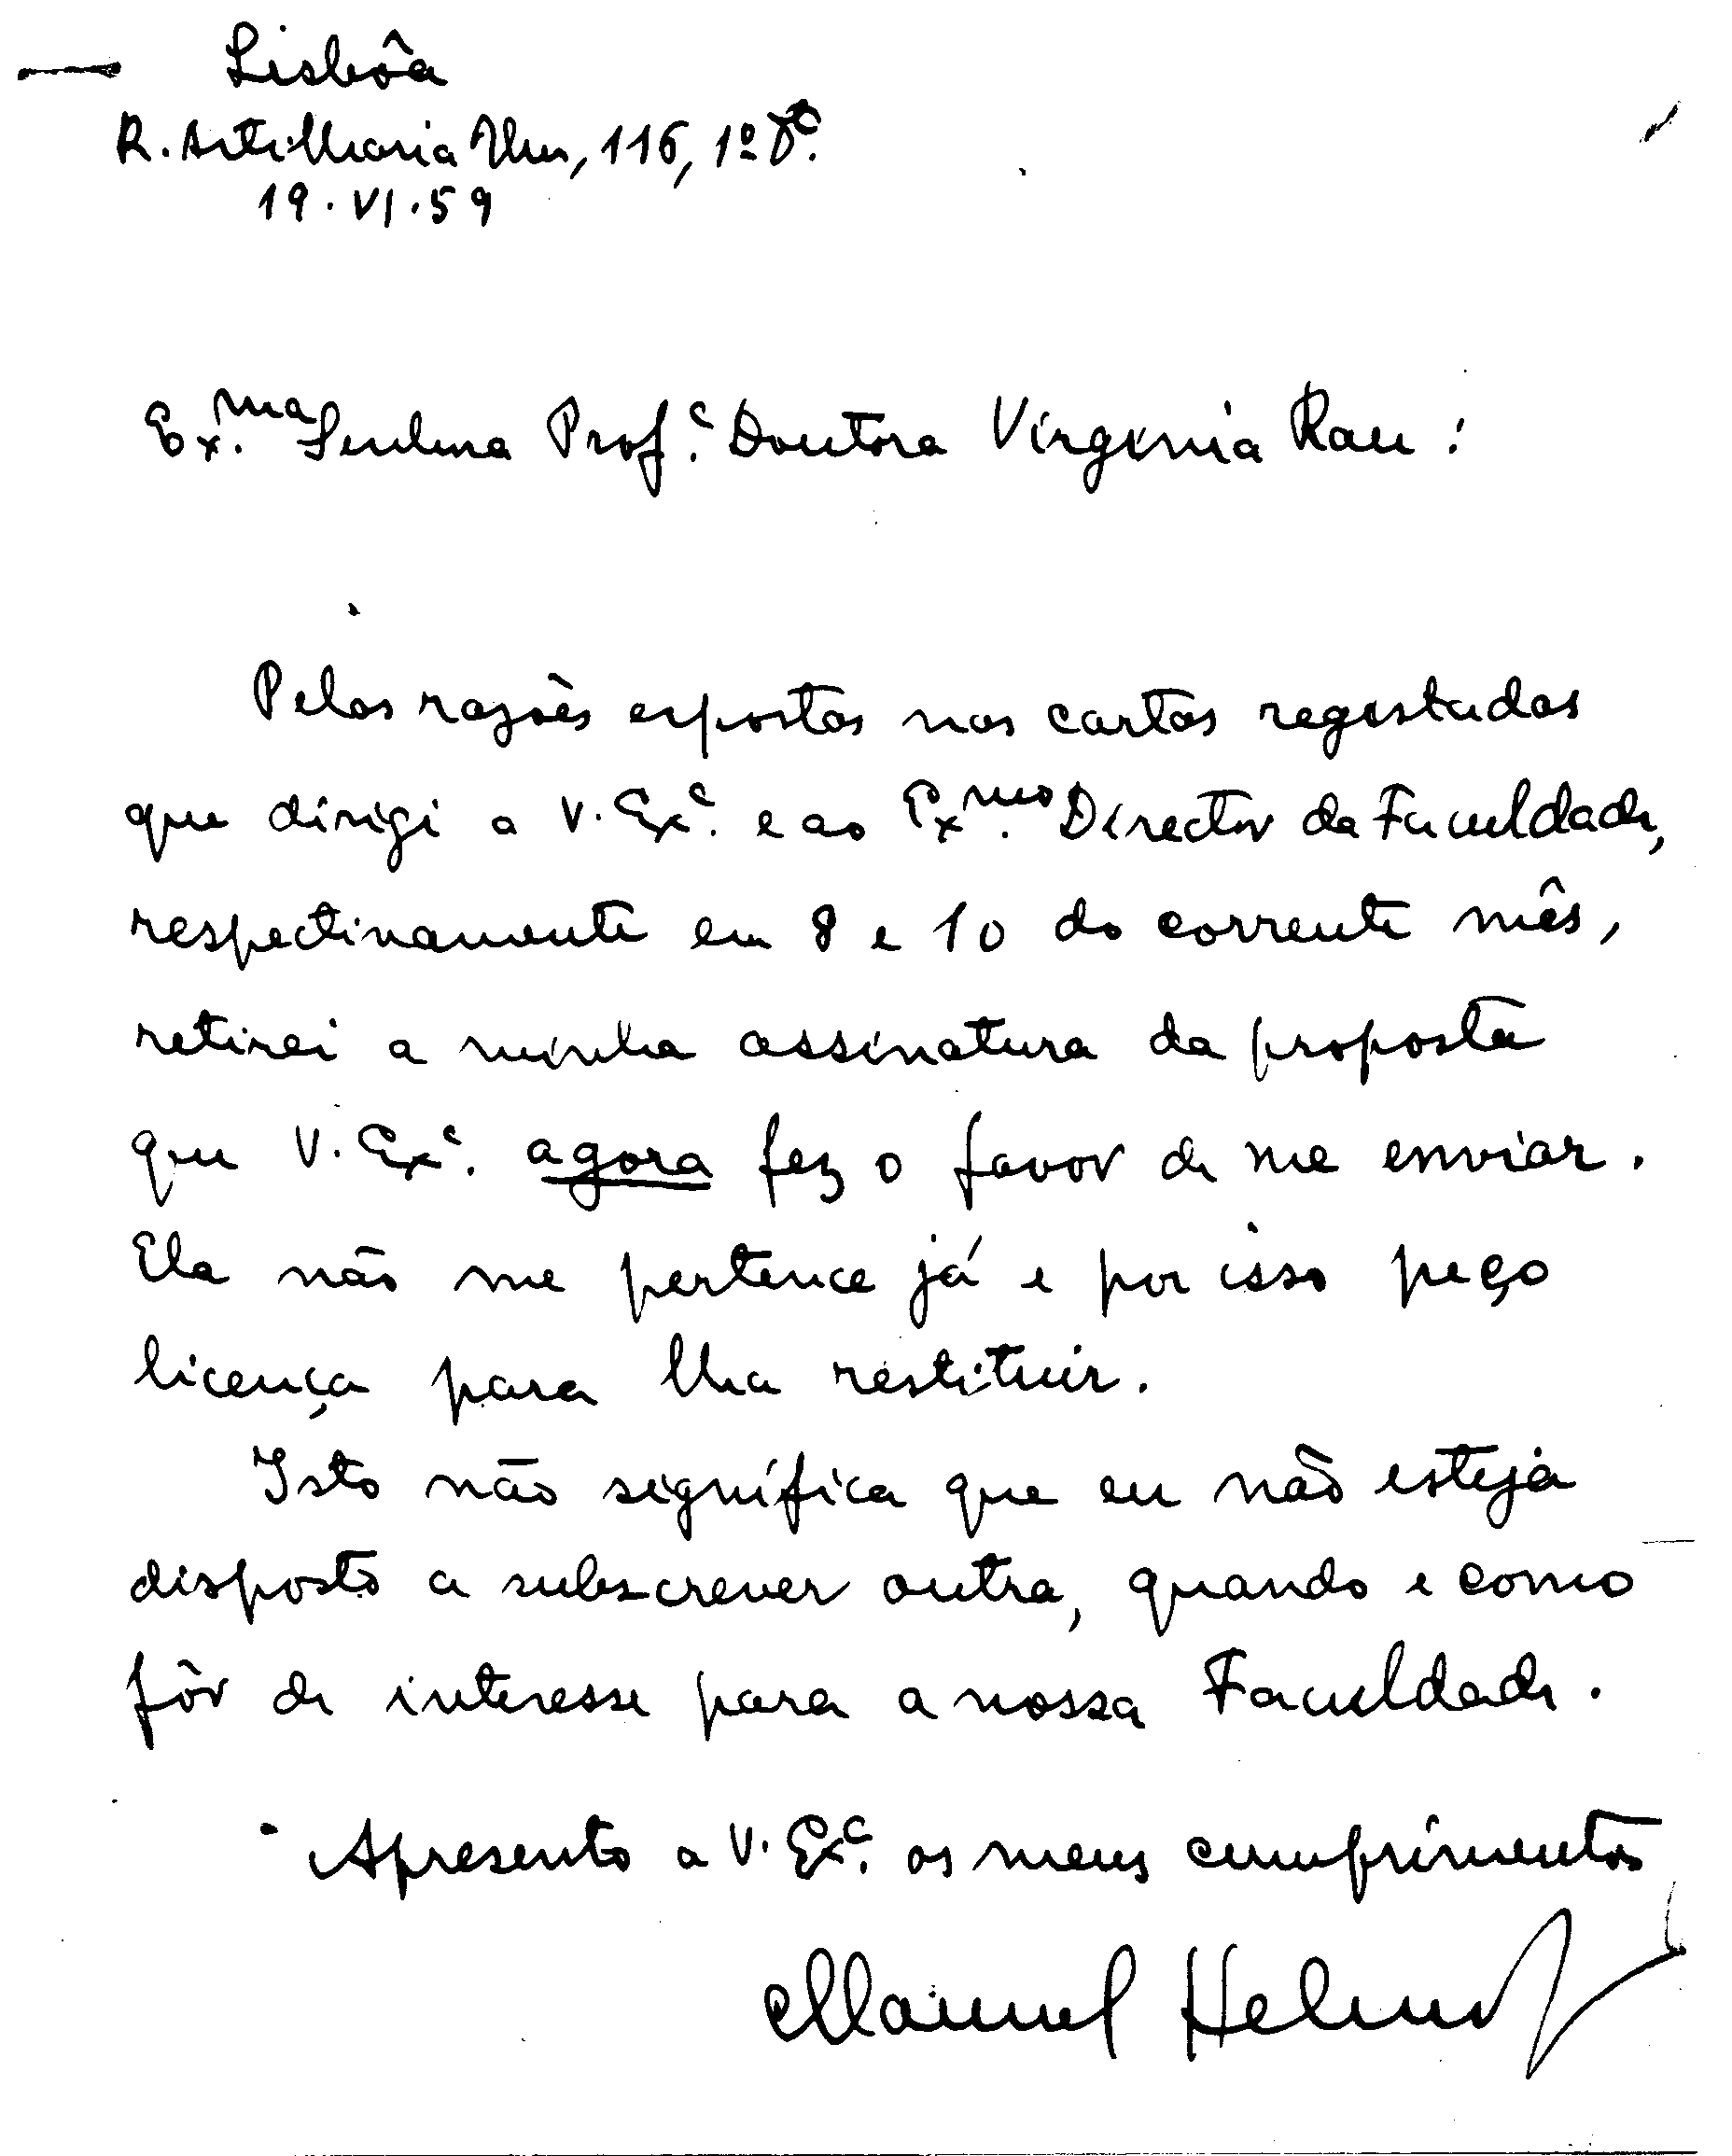 Lisbôa
R. Artilharia Um, 116, 1º Dtº.
19.VI.59
Ex.ma Senhora Prof.ª Doutora Virginia Rau:
Pelas razões expostas nas cartas registadas
que dirigi a V. Exª. e ao Ex.mo Director da Faculdade,
respectivamente em 8 e 10 do corrente mês,
retirei a minha assinatura da proposta
que V. Exª. agora fez o favor de me enviar.
Ela não me pertence já e por isso peço
licença para lha restituir.
Isto não significa que eu não esteja
disposto a subscrever outra, quando e como
fôr de interesse para a nossa Faculdade.
Apresento a V. Exª. os meus cumprimentos
Manuel